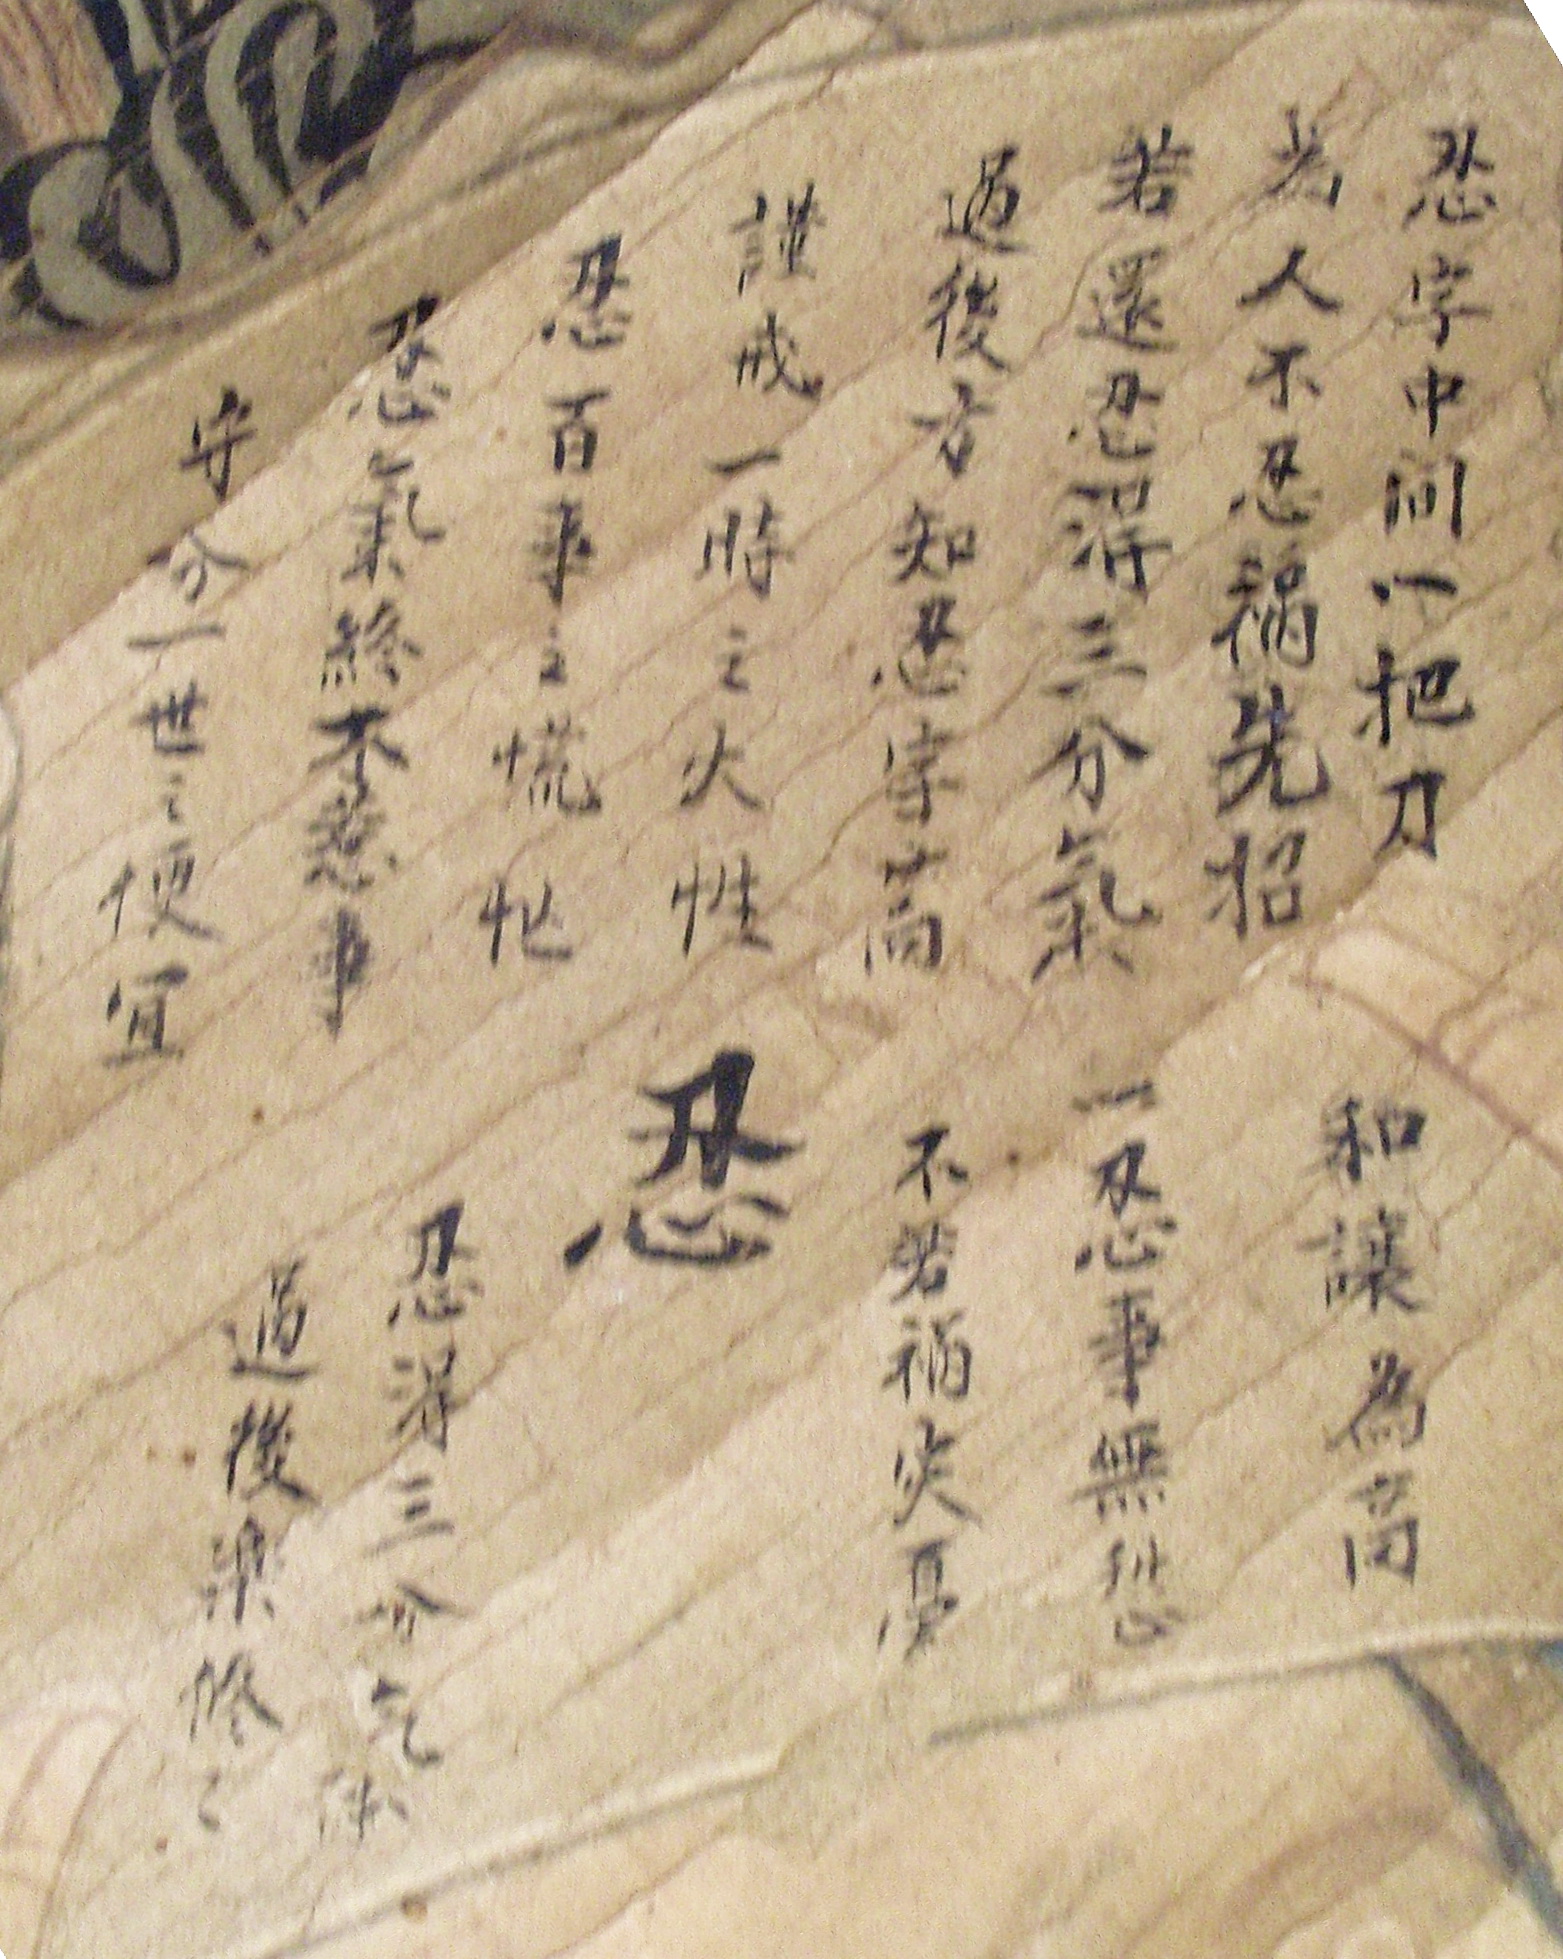 忍字中间一把刀
為人不忍禍先招
若還忍得三分氣
過後方知忍字高
謹戒一時之火性
忍百事之慌忙
忍氣終不惹事
守分一世之便宜
和讓為高
一忍事無愁
不若禍災憂
忍
忍得三分气
過後樂悠